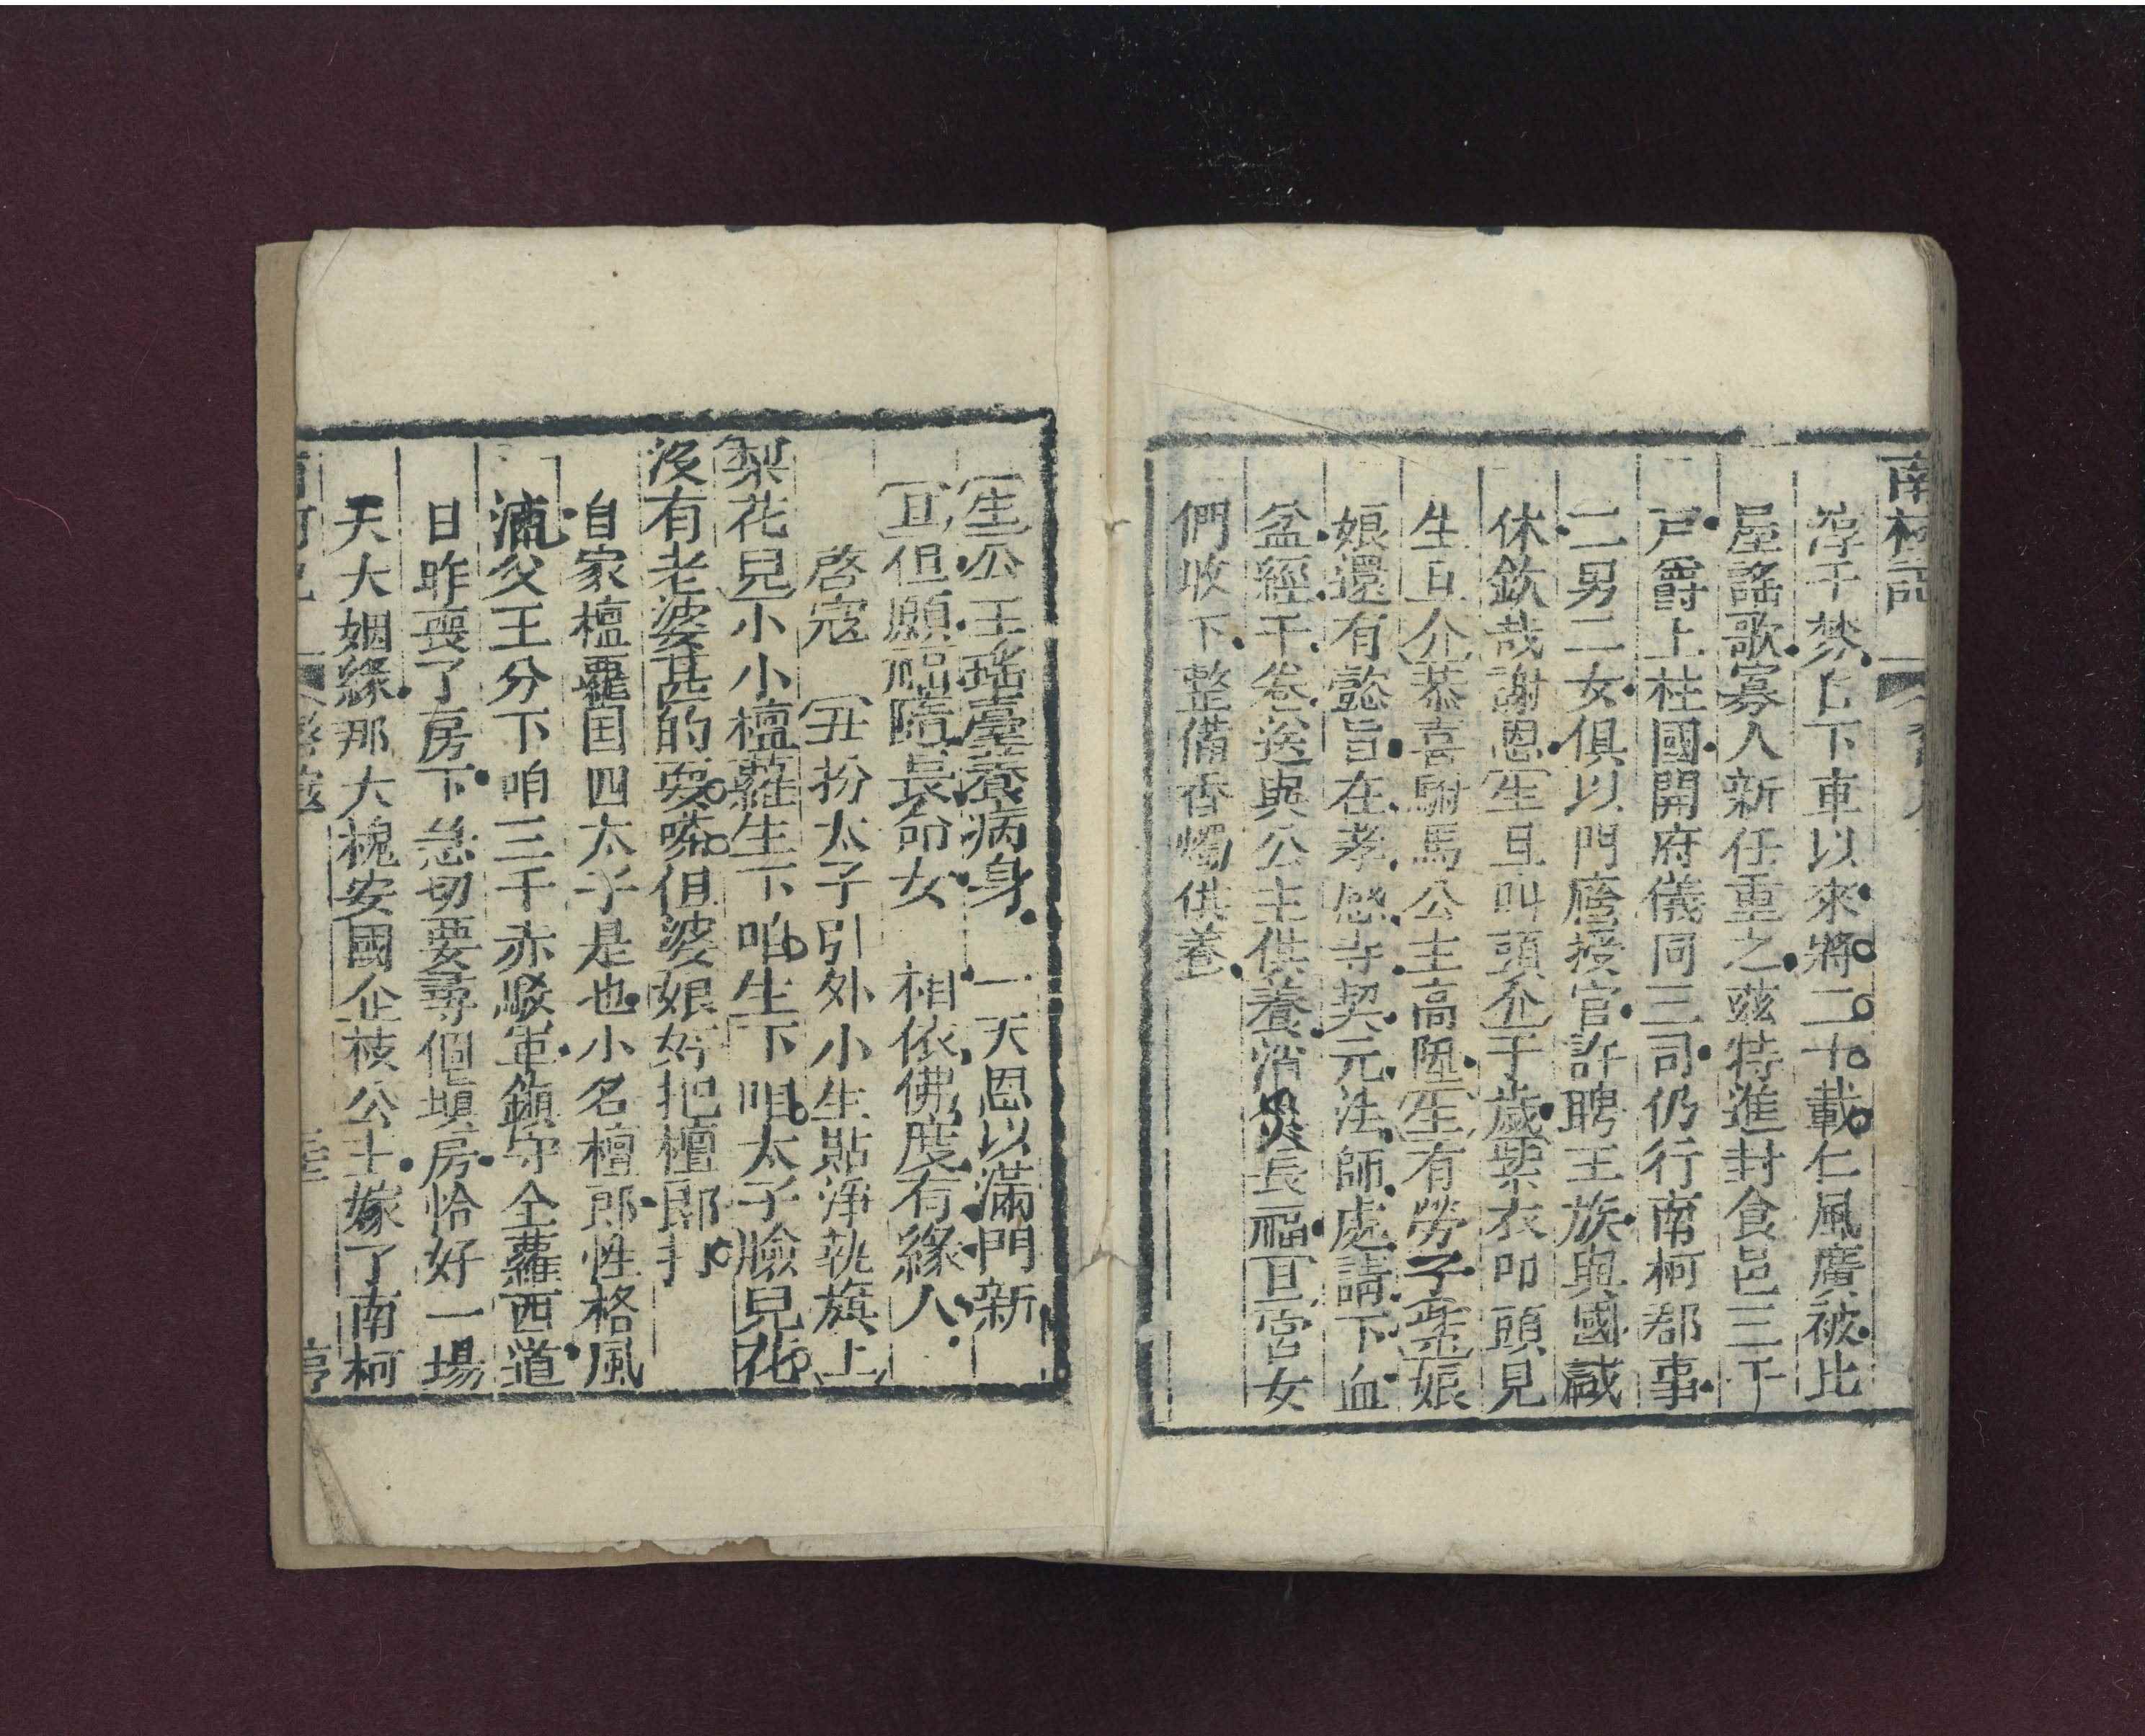 南柯記
淳于棼自下車以來將二十載仁風廣被比
屋謠歌寡人新任重之茲特進封食邑三千
戸爵上柱國開府儀同三司仍行南柯郡事
二男二女俱以門廕授官許聘王族與國咸
休欽哉謝恩生旦叫頭介千歲紫衣叩頭見
生旦介恭喜駙馬公主高陞生有勞子産娘
娘還有懿旨在孝感寺契元法師處請下血
盆經千卷送與公主供養消災長福旦宮女
們收下整備香燭供養
生公主瑤臺養病身　一天恩以滿門新
旦但願福隨長命女　相依佛度有緣人
啓寇　丑扮太子引外小生貼淨執旗上
梨花兒小小檀蘿生下咱生下咀太子臉兒花
沒有老婆甚的耍嗏但婆娘好把檀郎打
自家檀羅国四太子是也小名檀郎性格風
流父王分下咱三千赤駁軍鎭守全蘿西道
日昨喪了房下急切要尋個塡房恰好一場
天大姻緣那大槐安國企枝公主嫁了南柯